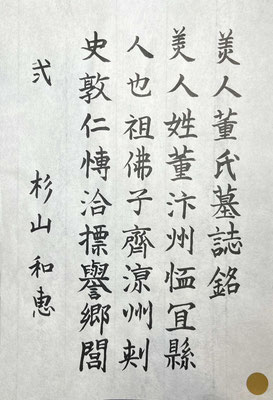 美人董氏墓誌銘
美人姓董汴州恤宜縣
人也祖佛子齊涼州刺
史敦仁慱洽摽譽鄉閭
弐 杉山和恵